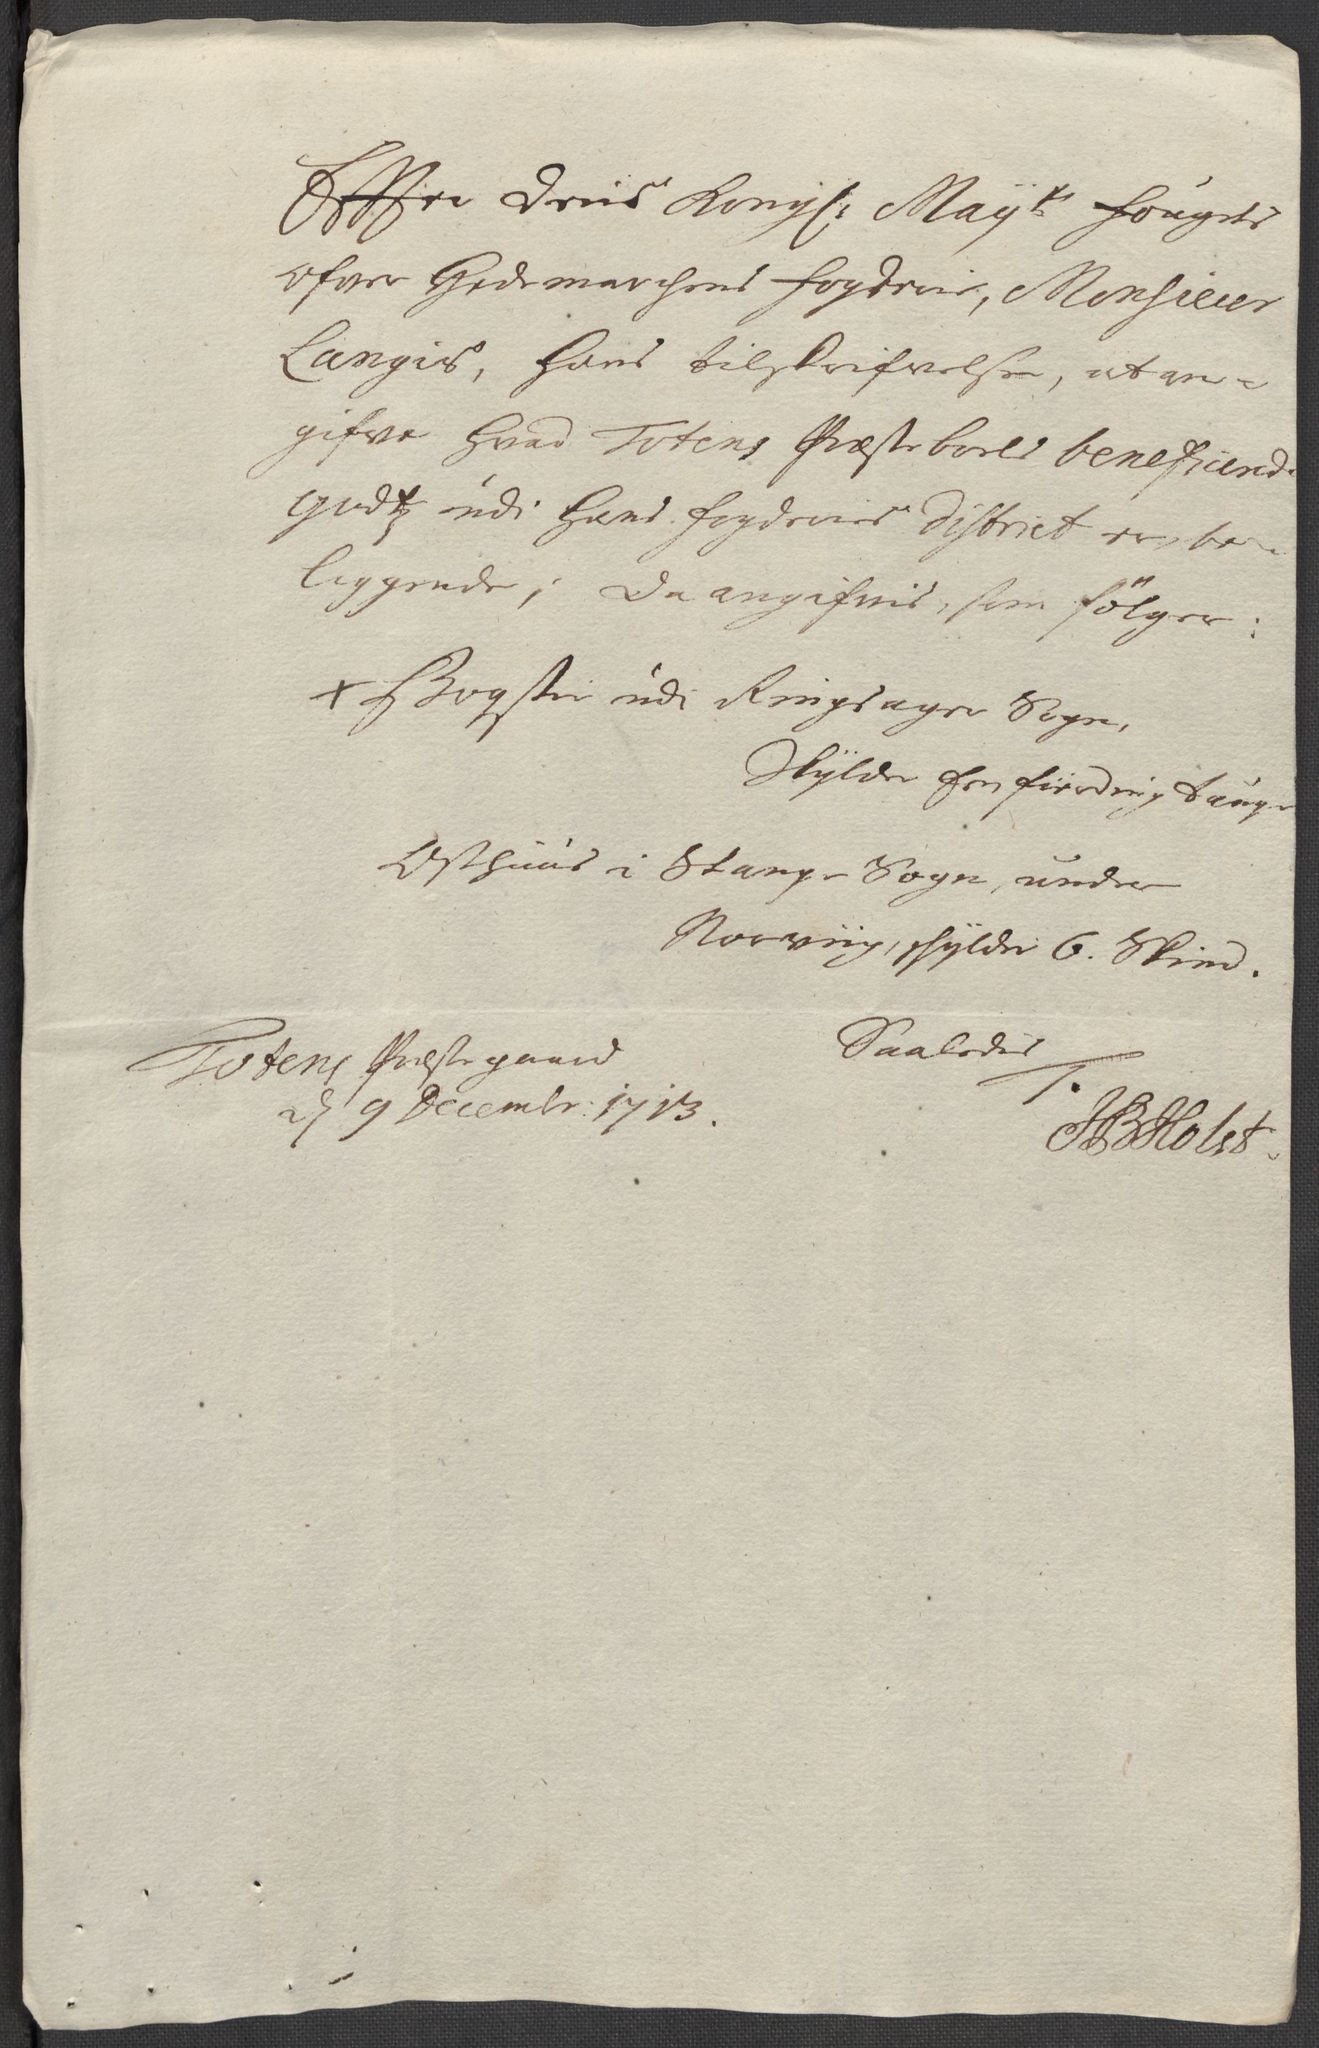 Effter Deris Kongl: Mayts fougets
ofver Hedemarchens fogderie, Monsieur
Langis, hans tilskrifvelse, at an-
gifve hvad Totens Præsteboels beneficerede
godtz udi hans fogderies District er be-
liggende; Da angifvis, som fölger:
+ Bogstie udi Ringsager Sogn,
Skylder En fierding tunge
Østhuus i Stange Sogn, under
Norviig, skylder 6. Skind.
Totens Præstegaard
d 9 Decembr: 1713.
Saaledis
T.
HBHolst.